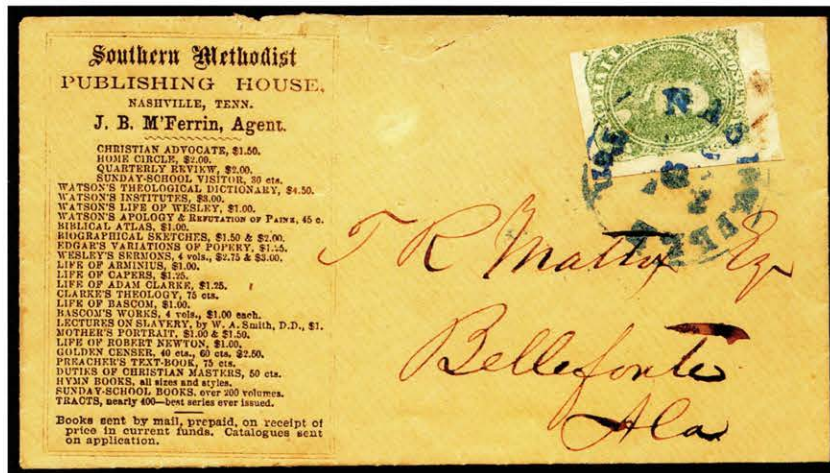 Southern Methodist
PUBLISHING HOUSE,
NASHVILLE, TENN.
J. B. M'Ferrin, Agent.
CHRISTIAN ADVOCATE, $1.50.
HOME CIRCLE, $2.00.
QUARTERLY REVIEW, $2.00.
SUNDAY-SCHOOL VISITOR, 30 cts.
WATSON'S THEOLOGICAL DICTIONARY, $4.50.
WATSON'S INSTITUTES, $3.00.
WATSON'S LIFE OF WESLEY, $1.00.
WATSON'S APOLOGY & REFUTATION OF PAINE, 45 c.
BIBLICAL ATLAS, $1.00.
BIOGRAPHICAL SKETCHES, $1.50 & $2.00.
EDGAR'S VARIATIONS OF POPERY, $1.25.
WESLEY'S SERMONS, 4 vols., $2.75 & $3.00.
LIFE OF ARMINIUS, $1.00.
LIFE OF CAPERS, $1.25.
LIFE OF ADAM CLARKE, $1.25.
CLARKE'S THEOLOGY, 75 cts.
LIFE OF BASCOM, $1.00.
BASCOM'S WORKS, 4 vols., $1.00 each.
LECTURES ON SLAVERY, by W. A. Smith, D.D., $1.
MOTHER'S PORTRAIT, $1.00 & $1.50.
LIFE OF ROBERT NEWTON, $1.00.
GOLDEN CENSER, 40 cts., 60 cts. $2.50.
PREACHER'S TEXT-BOOK, 75 cts.
DUTIES OF CHRISTIAN MASTERS, 50 cts.
HYMN BOOKS, all sizes and styles.
SUNDAY-SCHOOL BOOKS, over 200 volumes.
TRACTS, nearly 400—best series ever issued.
Books sent by mail, prepaid, on receipt of
price in current funds. Catalogues sent
on application.
T R Mattox Esq
Bellefonte
Ala